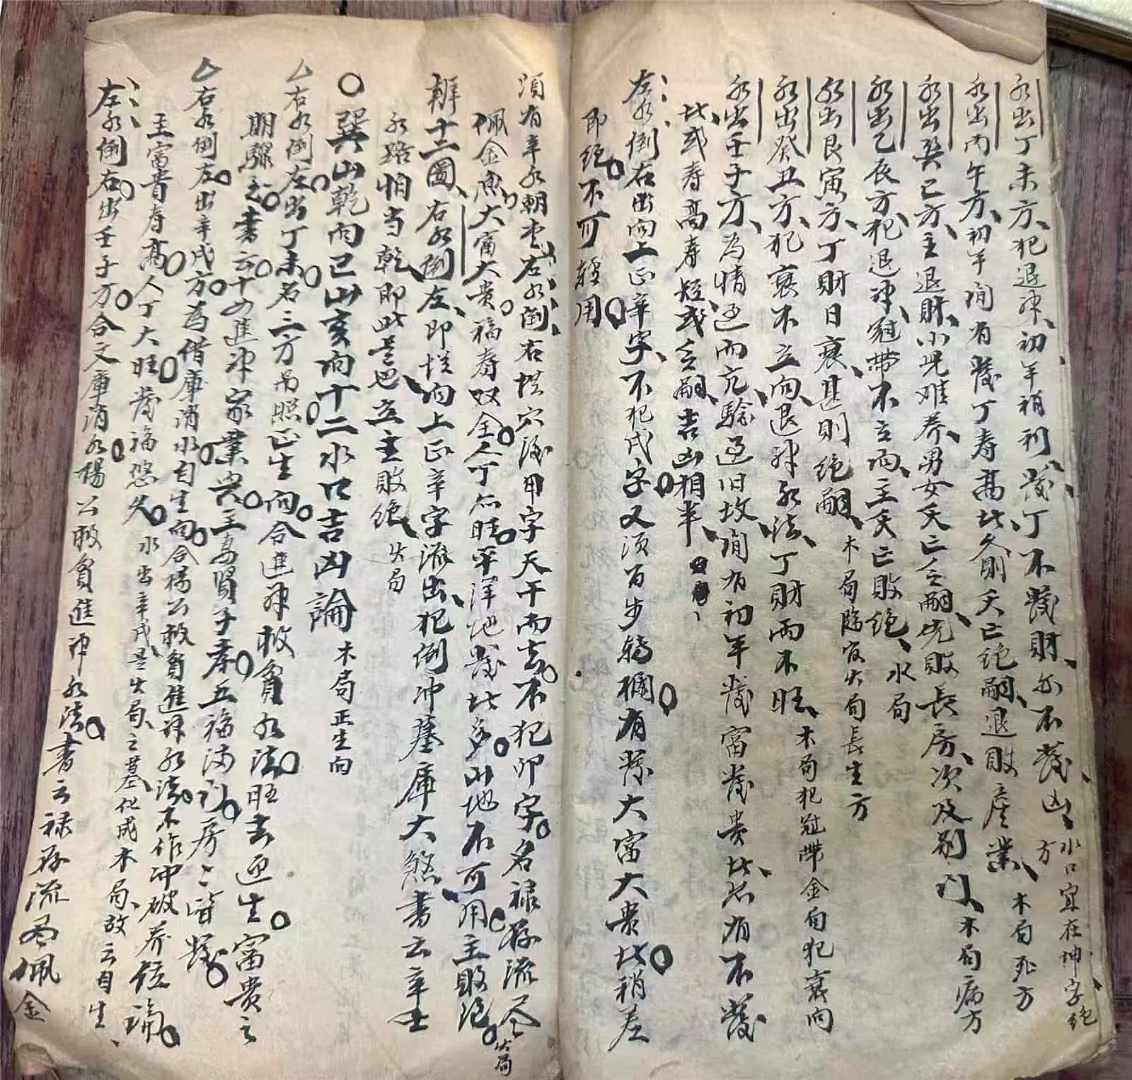 水出丁未方、犯退神、初年稍利、發丁不發財、亦不發凶、水口宜在坤字絶方
水出丙午方、初年間有發丁寿高、比久則夭亡絶嗣、退敗產業、木局死方
水出巽巳方、主退財、小児难养、男女夭亡乏嗣、先敗長房、次及别门、木局病方
水出乙辰方、犯退神、冠帶不立向、主夭亡敗绝、水局
水出艮寅方、丁財日衰、甚則绝嗣、木局臨官火局長生方
水出癸丑方、犯衰不立向、退神水法、丁財两不旺、木局犯冠帶金局犯衰向
水出壬子方、為情过而亢驗过旧坟間有初年發富發贵、比亦有不發
比或寿高寿短、或乏嗣、吉凶相半、
左水倒右出向上正辛字、不犯戌字、又須百步轉欄、有發大富大贵、比稍差
即絕、不可輕用
須有辛水朝堂、左水倒右、從穴後甲字天干而去、不犯卯字、名禄存流尽
佩金魚、大富大贵、福寿双全、人丁亦旺、平洋地發比多、山地不可用、主敗绝、火局
辨十二圖、右水倒左、即從向上正辛字流出、犯倒冲墓庫大煞、書云辛壬
水路怕当乾、即此是也、立主敗绝、火局
巽山乾向巳山亥向十二水口吉凶論 木局正生向
右水倒左出丁未名三方吊照正生向、合進神救貧水法、旺去迎生、富贵之
期驟至、書云十四進神家業兴、主妻賢子孝、五福满门、房々皆發
右水倒左出辛戌方、為借庫消水自生向、合楊公救貧進神水法、不作冲破养位論
主富貴寿高、人丁大旺、發福悠久、水出辛戌是火局之墓、化成木局、故云自生、
左水倒右出壬子方、合文庫消水、楊公救貧進神水法、書云禄存流尽佩金